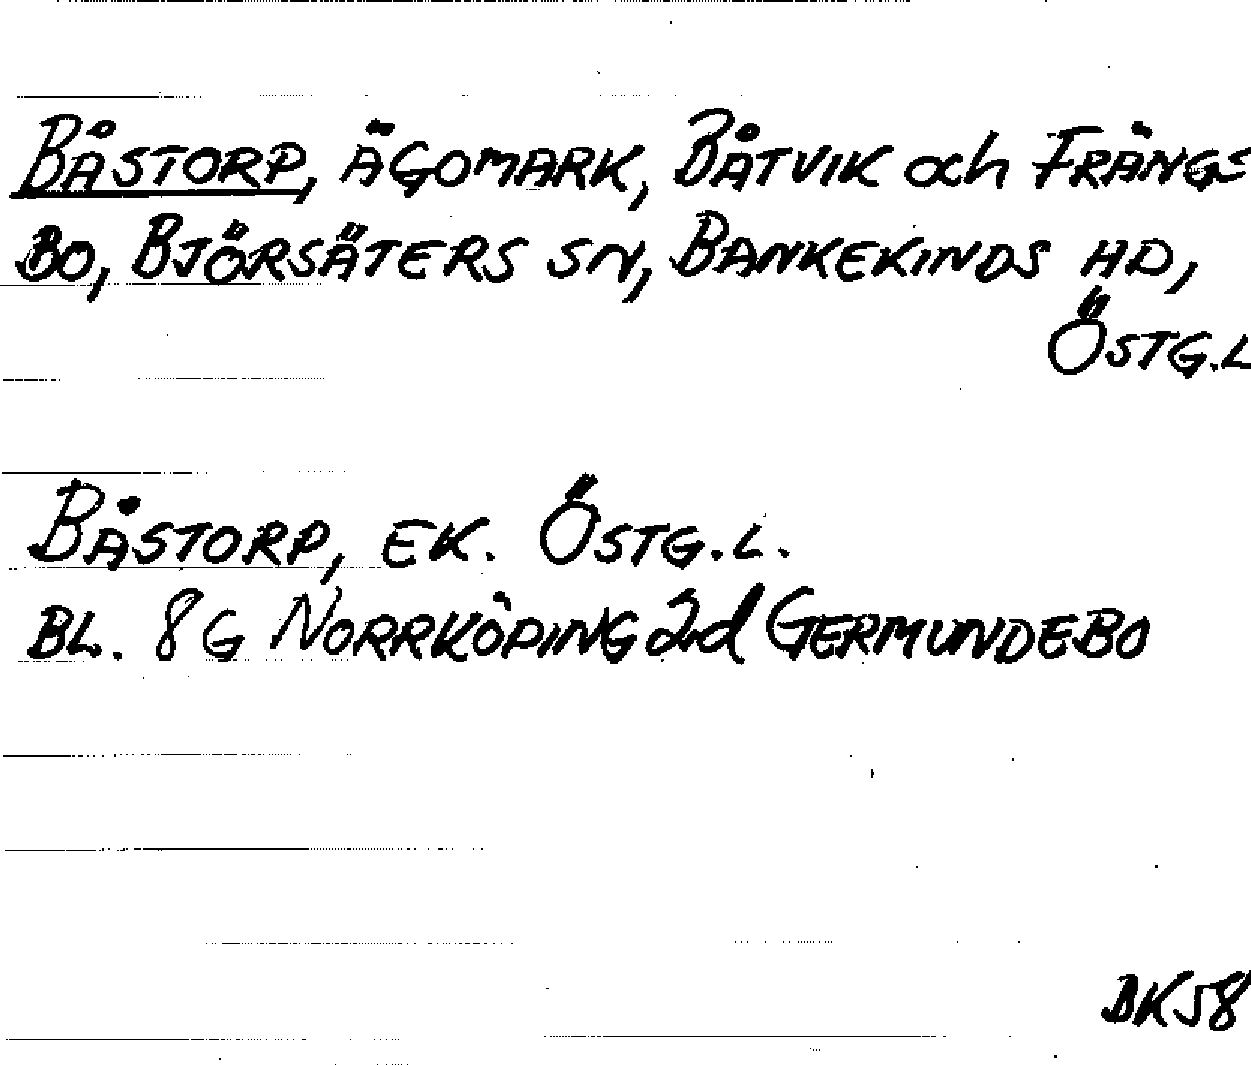 BÅSTORP, ÄGOMARK, BÅTVIK och FRÄNGS=
BO, BJÖRSÄTERS SN, BANKEKINDS HD,
ÖSTG.L
BÅSTORP, EK. ÖSTG.L.
BL. 8G NORRKÖPING 2d GERMUNDEBO
BK58